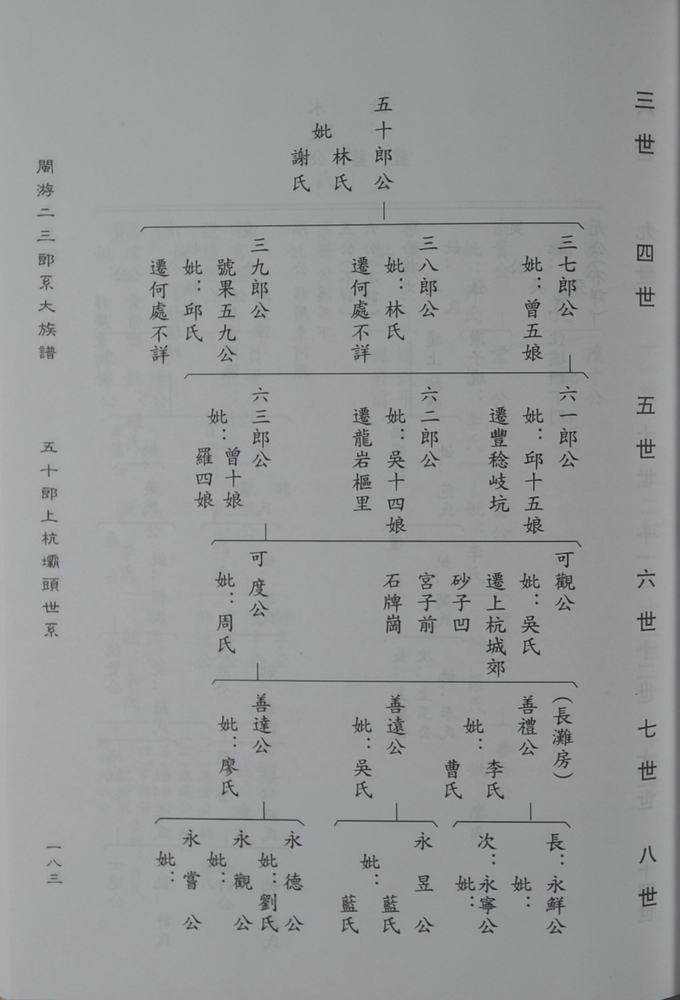 三世
五十郎公
妣 林氏
謝氏
四世
三七郎公
妣：曾五娘
三八郎公
妣：林氏
遷何處不詳
三九郎公
號果五九公
妣：邱氏
遷何處不詳
五世
六一郎公
妣：邱十五娘
遷豐稔岐坑
六二郎公
妣：吳十四娘
遷龍岩樞里
六三郎公
妣：曾十娘
羅四娘
六世
可觀公
妣：吳氏
遷上杭城郊
砂子凹
宮子前
石牌崗
可度公
妣：周氏
七世
（長灘房）
善禮公
妣：李氏
曹氏
善遠公
妣：吳氏
善達公
妣：廖氏
八世
長：永鮮公
妣：
次：永寧公
妣：
永昱公
妣：藍氏
藍氏
永德公
妣：劉氏
永觀公
妣：
永嘗公
妣：
閩游二三郎系大族譜
五十郎上杭壩頭世系
一八三